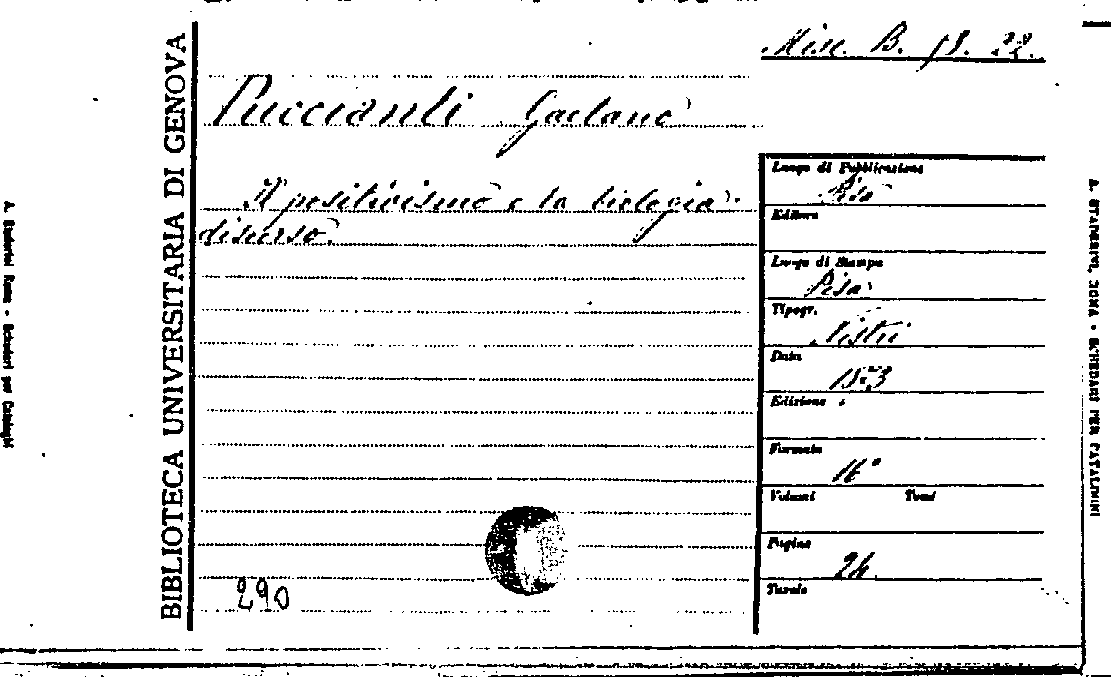 Misc. B. 18. 22.
BIBLIOTECA UNIVERSITARIA DI GENOVA
Puccianti Gaetano
Il positivismo e la biologia.
discorso.
Luogo di Pubblicazione
Pisa
Editore
Luogo di Stampa
Pisa
Tipogr.
Nistri
Data
Edizione
Formato
16°
Volumi Tomi
Pagine
24
Tavole
290
A. STADERINI, ROMA - SCHEDARI PER CATALOGHI
A. Staderini Roma - Schedari per Cataloghi